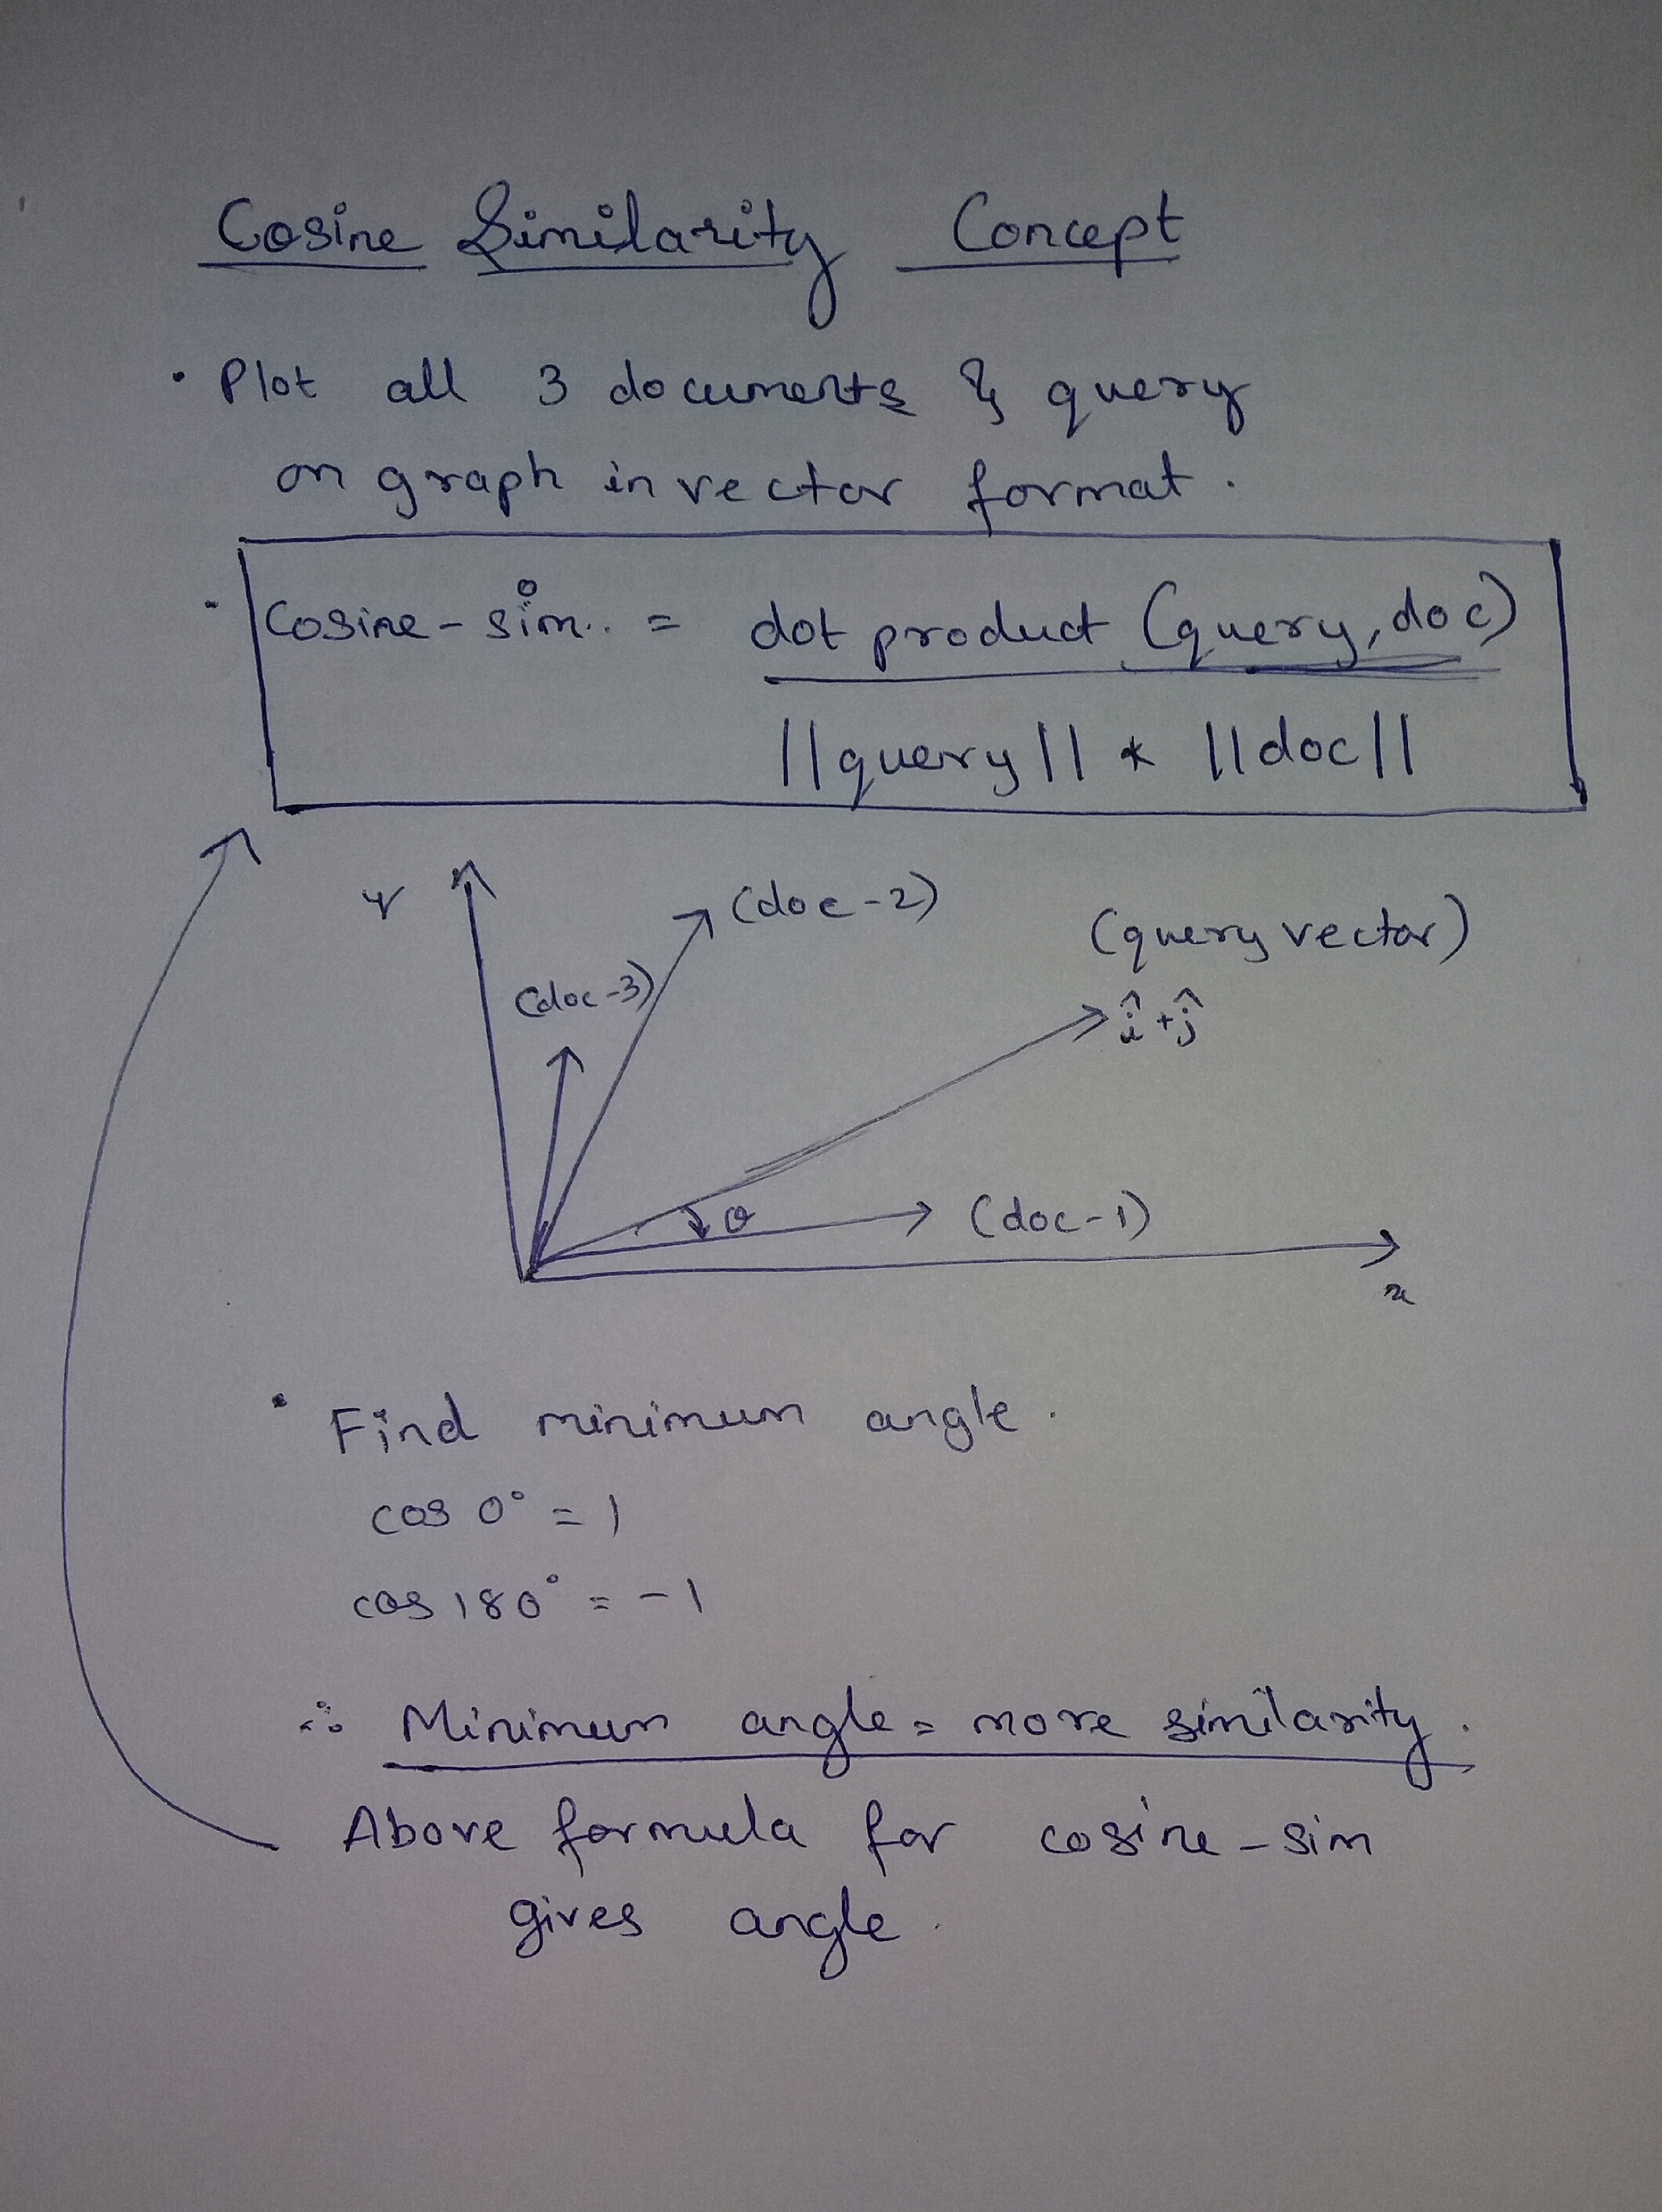 Cosine Similarity Concept
• Plot all 3 documents & query
on graph in vector format.
• Cosine-sim.. = dot product (query, doc)
||query|| * ||doc||
Y
(doc-2)
(query vector)
(doc-3)
î+ĵ
θ
(doc-1)
x
• Find minimum angle.
cos 0° = 1
cos 180° = -1
∴ Minimum angle = more similarity.
Above formula for cosine-sim
gives angle.